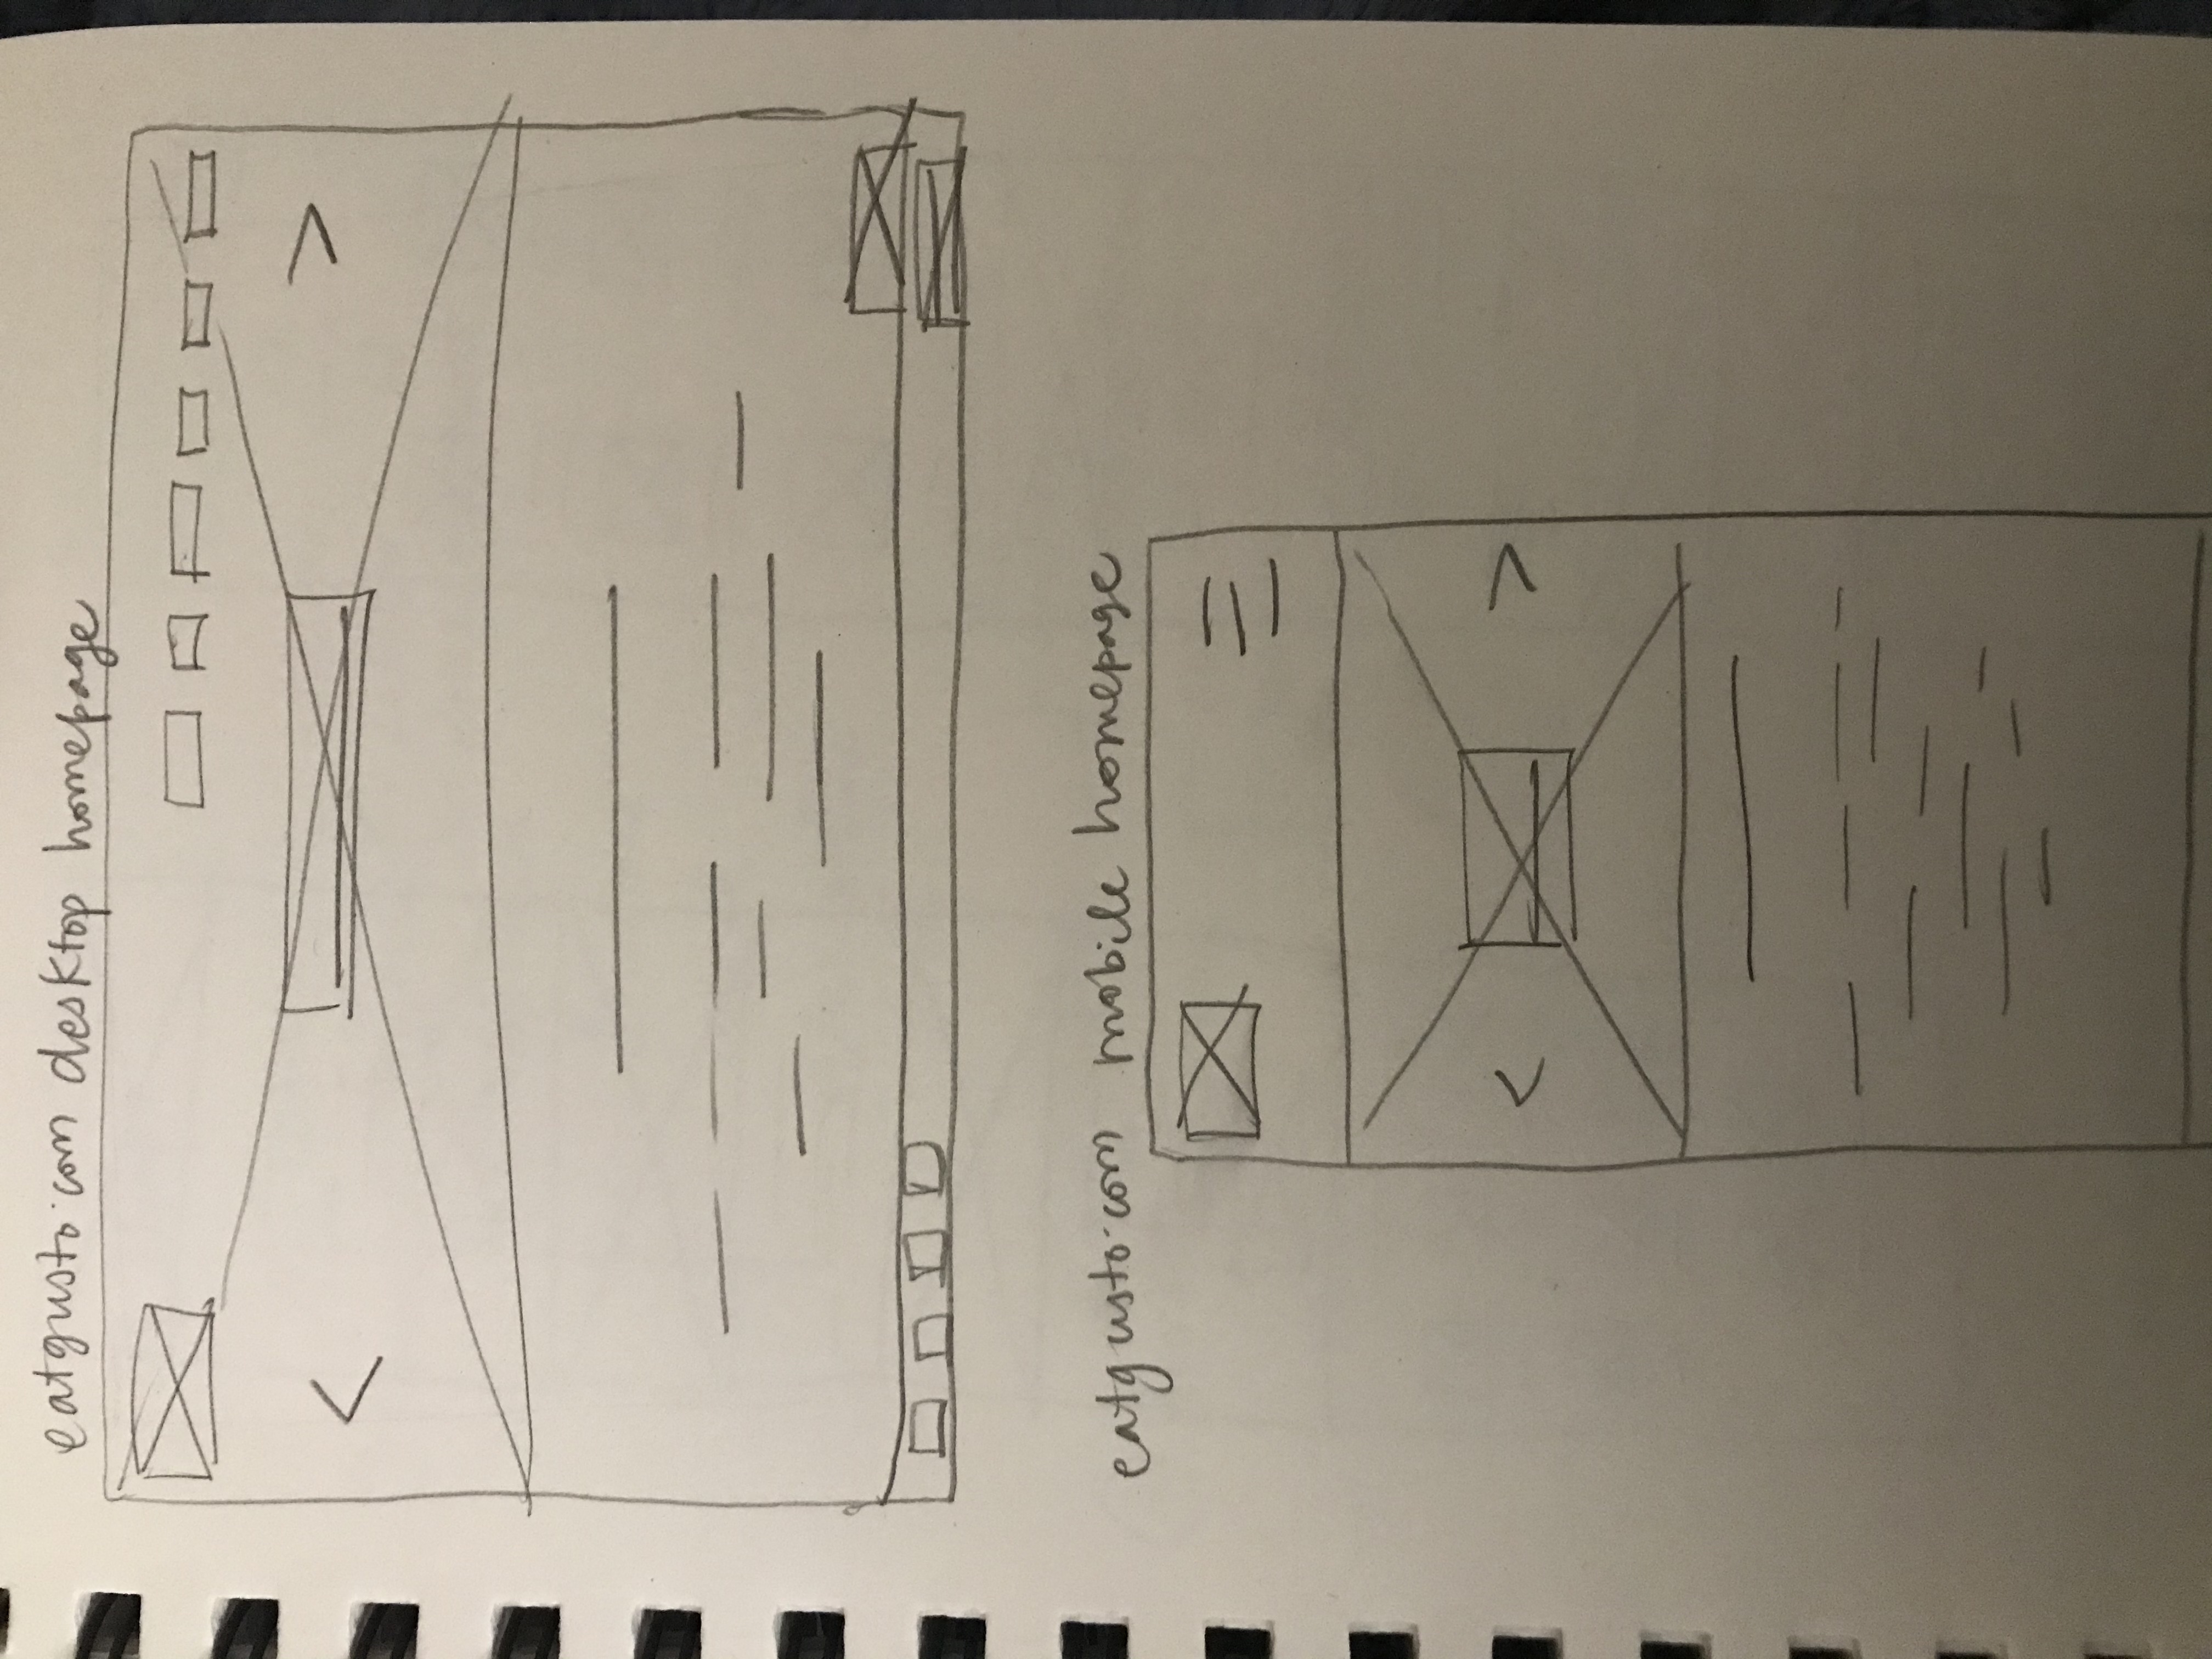 eatgusto.com desktop homepage
eatgusto.com mobile homepage